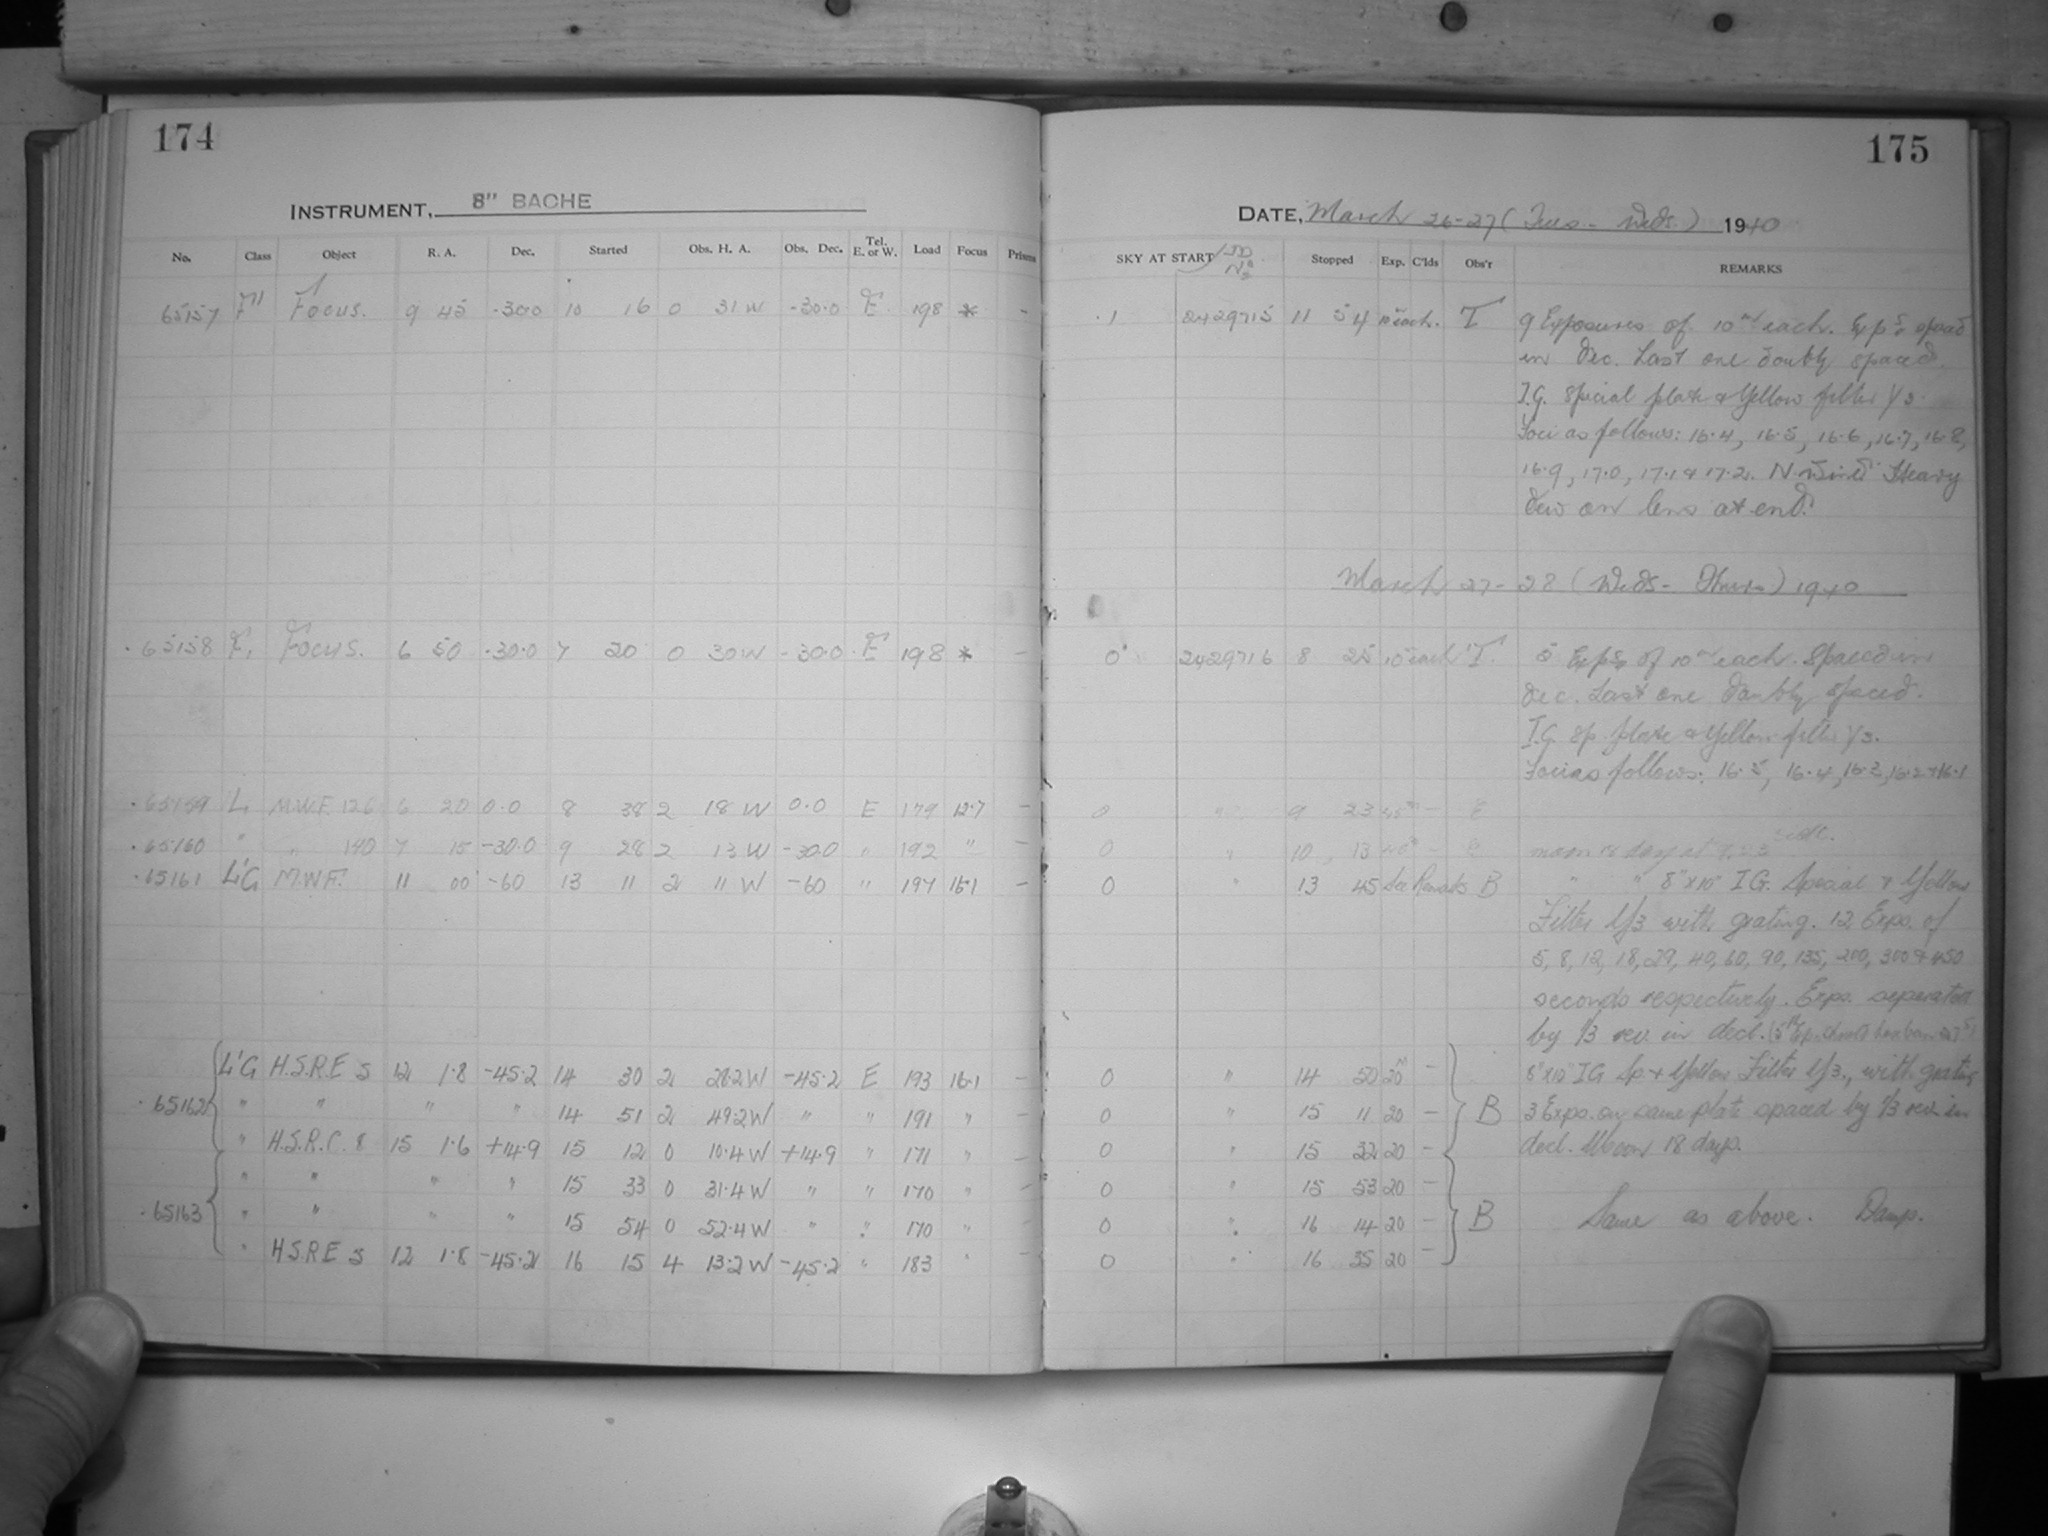 174
INSTRUMENT, 8" BACHE
No. Class Object R. A. Dec. Started Obs. H. A. Obs. Dec. Tel. E. or W. Load Focus Prisms
65157 Focus. 9 45 -30.0 10 16 0 31 W -30.0 E 198 * -
.65158 Focus. 6 50 -30.0 7 20 0 30 W -30.0 E 198 * -
.65159 L M.W.F. 126 6 20 0.0 8 38 2 18 W 0.0 E 179 12.7 -
.65160 " " 140 7 15 -30.0 9 28 2 13 W -30.0 " 192 " -
.65161 L'G M.W.F. 11 00 -60 13 11 2 11 W -60 " 197 16.1 -
L'G H.S.R.E 5 12 1.8 -45.2 14 30 2 28.2 W -45.2 E 193 16.1 -
.65162 " " " " 14 51 2 49.2 W " " 191 " -
" H.S.R.C. 8 15 1.6 +14.9 15 12 0 10.4 W +14.9 " 171 " -
" " " " 15 33 0 31.4 W " " 170 " -
.65163 " " " " 15 54 0 52.4 W " " 170 " -
" H.S.R.E 5 12 1.8 -45.2 16 15 4 13.2 W -45.2 " 183 -
175
DATE, March 26-27 (Tues - Weds.) 1940
SKY AT START JD No Stopped Exp. C'lds Obs'r REMARKS
.1 2429715 11 54 10m each. T 9 Exposures of 10m each. Exps. spaced
in Dec. Last one doubly spaced.
I.G. Special plate & Yellow filter Y3.
Foci as follows: 16.4, 16.5, 16.6, 16.7, 16.8,
16.9, 17.0, 17.1 & 17.2. N. Wind Heavy
Dew on lens at end.
March 27-28 (Weds - Thurs) 1940
0 2429716 8 25 10m each T. 5 Exps of 10m each. Spaced in
Dec. Last one doubly spaced.
I.G. Sp. plate & Yellow filter Y3.
Foci as follows: 16.5, 16.4, 16.3, 16.2 & 16.1
0 " 9 23 45m -
0 " 10 13 45m - moon 18 days at
0 " 13 45 See Remarks B " " 8" x 10" I.G. Special & Yellow
Filter Y3 with grating. 12 Exps. of
5, 8, 12, 18, 27, 40, 60, 90, 135, 200, 300 & 450
seconds respectively. Exps. separated
by 1/3 rev. in decl.
0 " 14 50 20m - 8" x 10" I G Sp. & Yellow Filter Y3., with grating
0 " 15 11 20 - B 3 Exps. on same plate spaced by 1/3 rev. in
0 " 15 32 20 - decl. Moon 18 days.
0 " 15 53 20 -
0 " 16 14 20 - B Same as above. Damp.
0 " 16 35 20 -